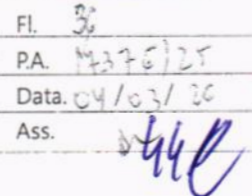 Fl. 36
P.A. 17376/25
Data. 04/03/26
Ass.